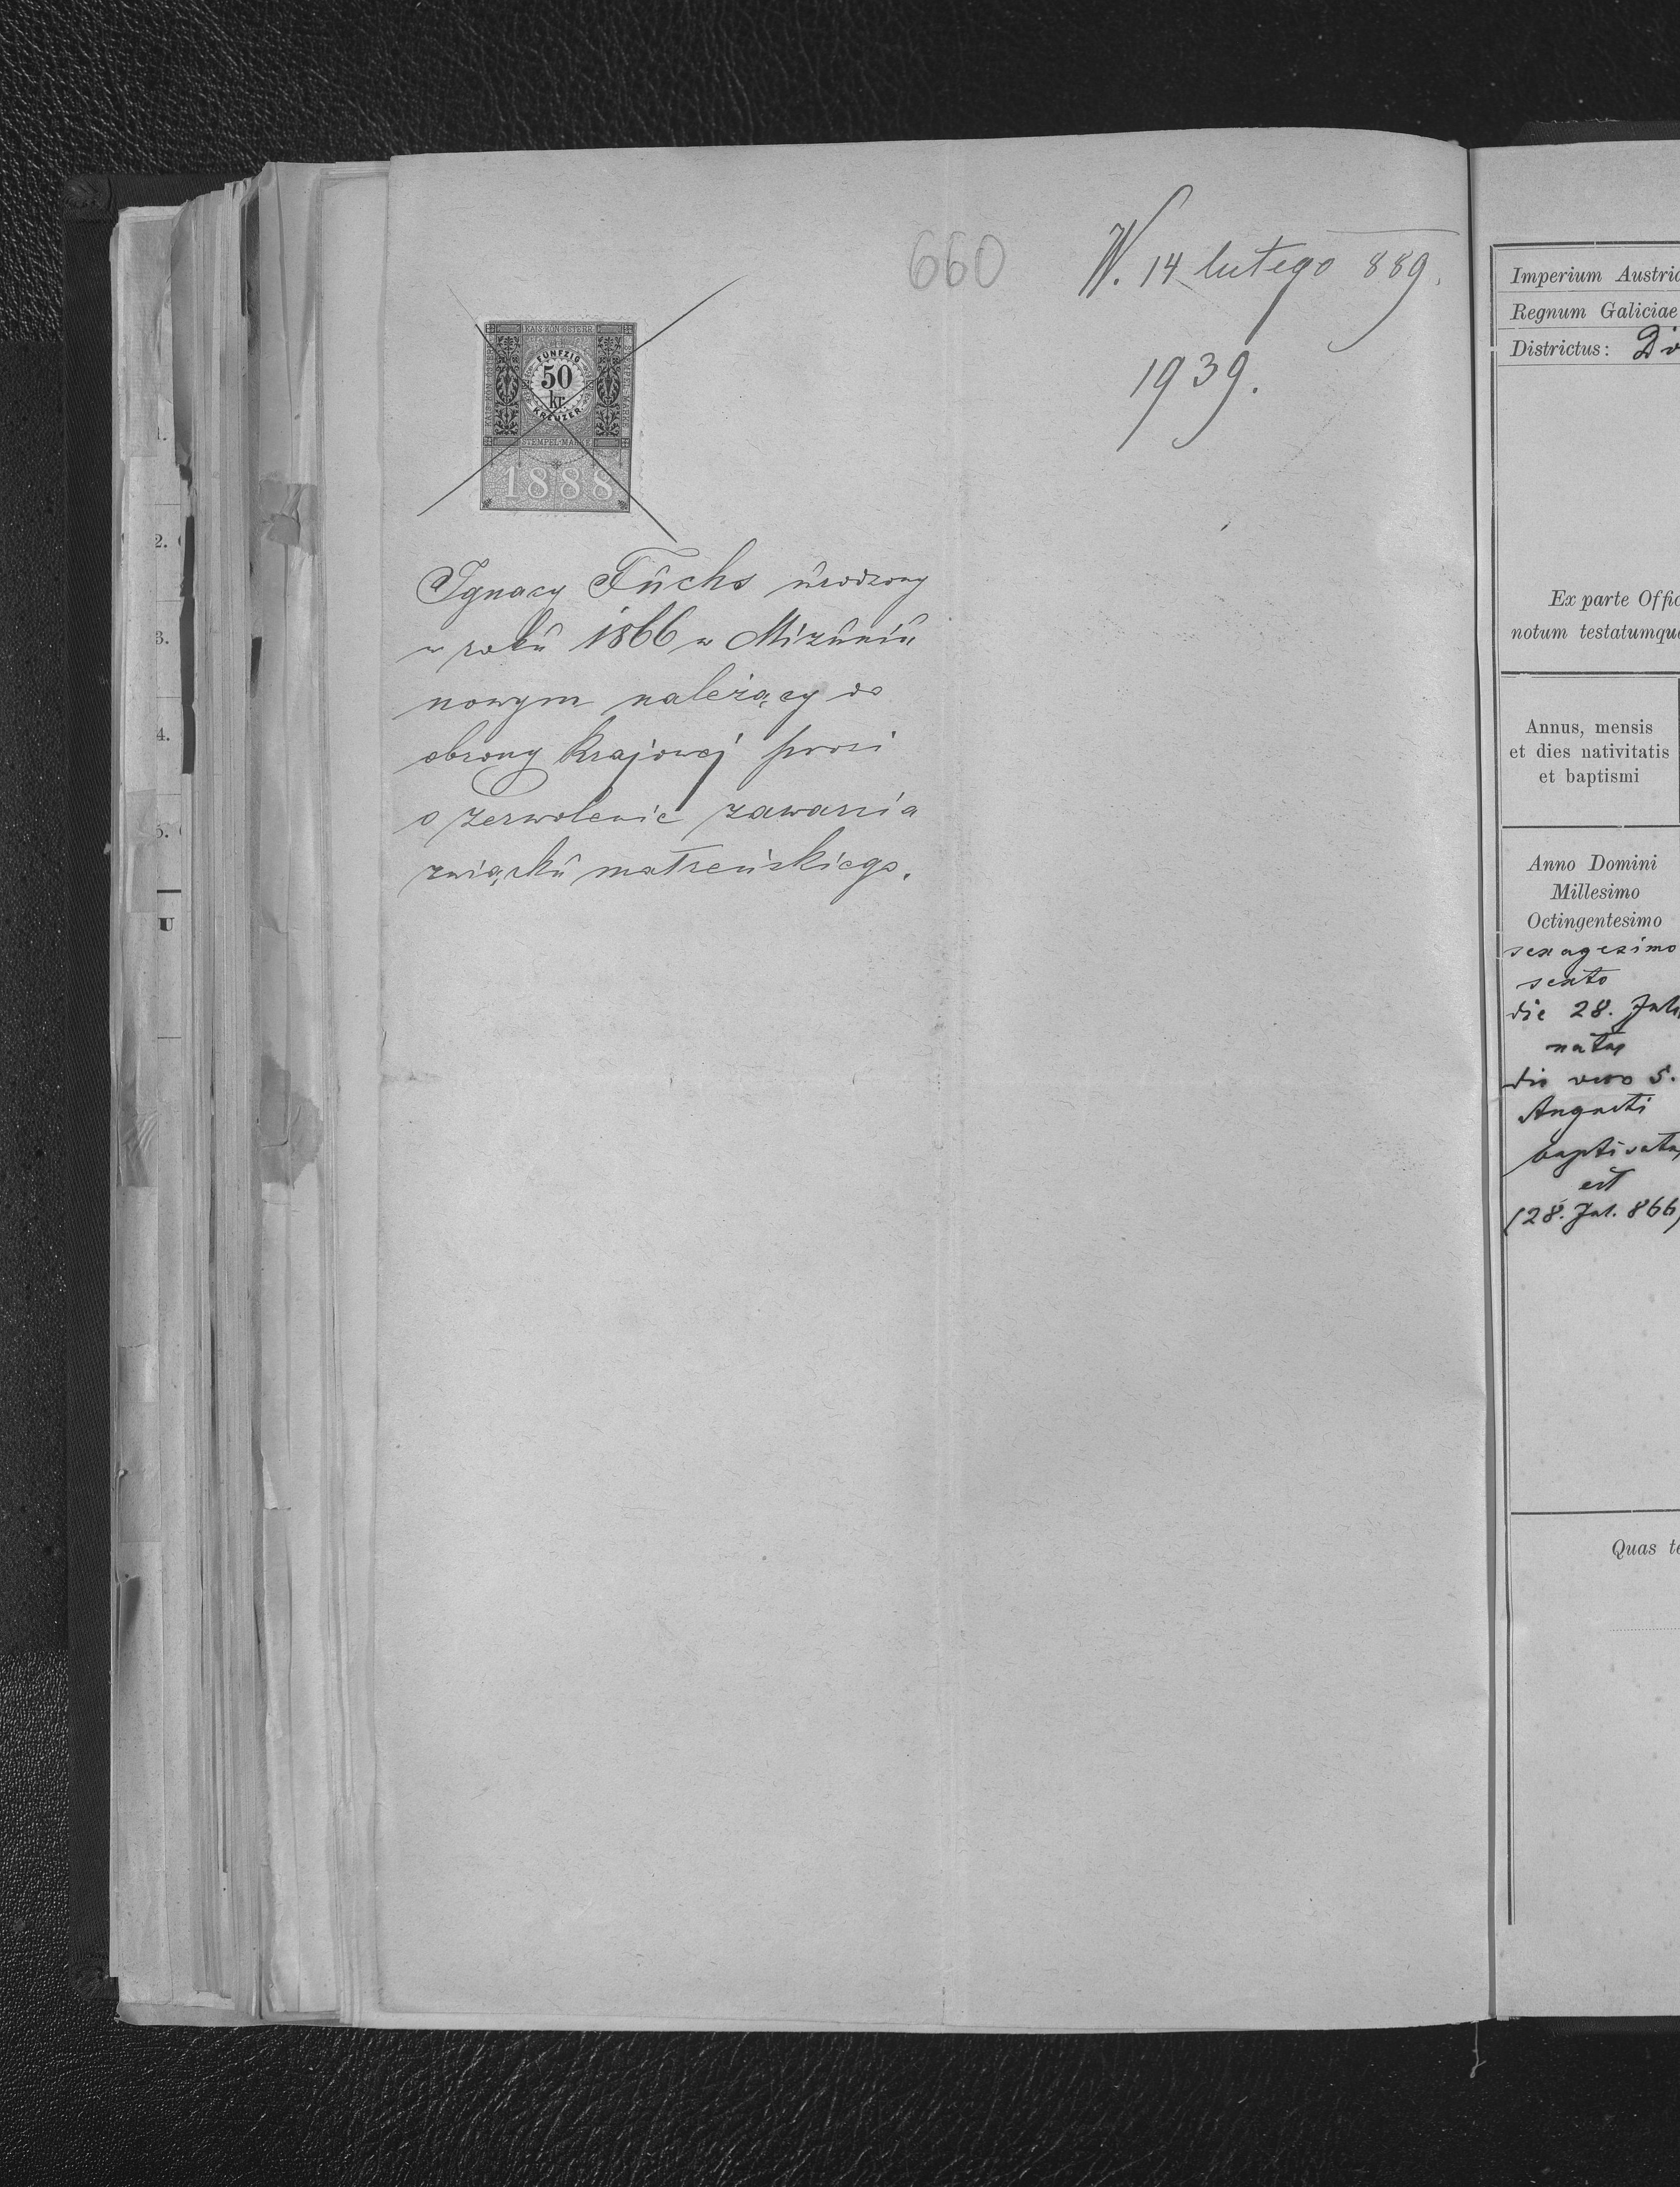 660
W. 14 lutego 889.
1939.
KAIS.KÖN.ÖSTERR.
FÜNFZIG
50
kr.
KREUZER
STEMPEL-MARKE
1888
Ignacy Fuchs urodzony
w roku 1866 w Mizuniu
nowym należący do
obrony krajowej prosi
o zezwolenie zawarcia
związku małżeńskiego.
2.
3.
4.
5.
U
Imperium Austria
Regnum Galiciae
Districtus: Do
Ex parte Offic
notum testatumque
Annus, mensis
et dies nativitatis
et baptismi
Anno Domini
Millesimo
Octingentesimo
sexagesimo
sexto
die 28. Juli
natus
die vero 5.
Augusti
baptisatus
est
(28. Jul. 866)
Quas te